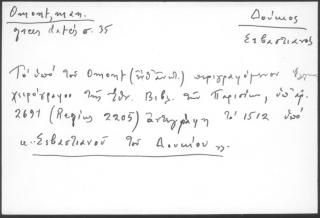 Omont, man.
grecs datés σ. 35
Δούκιος
Σεβαστιανός
Τὸ ὑπὸ τοῦ Omont περιγραφόμενον
χειρόγραφον τῆς Ἐθν. Βιβλ. τῶν Παρισίων, ὑπ' ἀρ.
2691 (Regius 2205) ἀντεγράφη τὸ 1512 ὑπὸ
Σεβαστιανοῦ τοῦ Δουκίου